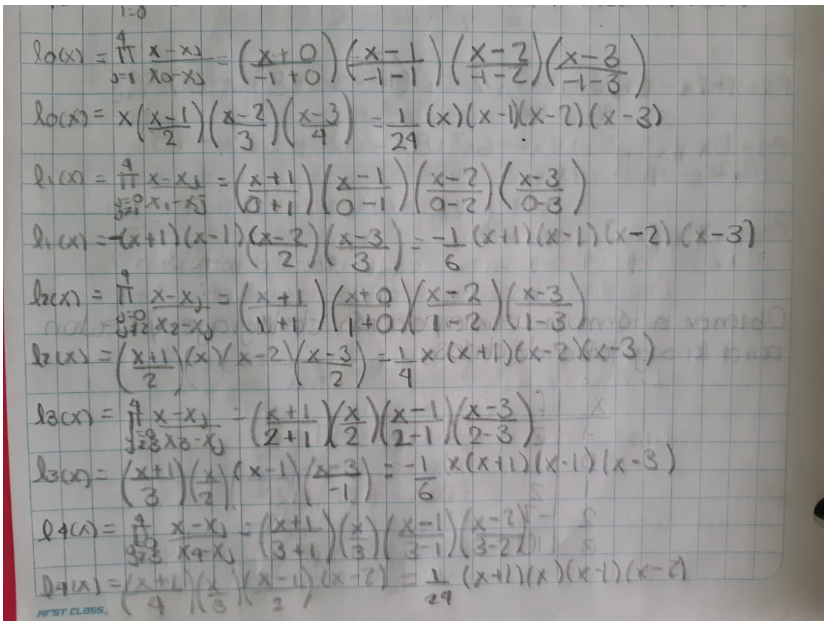 i=0
l0(x) = 4 ∏ j=1 x-xj / x0-xj = (x+0 / -1+0) (x-1 / -1-1) (x-2 / -1-2) (x-3 / -1-3)
l0(x) = x (x-1 / 2) (x-2 / 3) (x-3 / 4) = 1/24 (x)(x-1)(x-2)(x-3)
l1(x) = 4 ∏ j=0 j≠1 x-xj / x1-xj = (x+1 / 0+1) (x-1 / 0-1) (x-2 / 0-2) (x-3 / 0-3)
l1(x) = -(x+1)(x-1) (x-2 / 2) (x-3 / 3) = -1/6 (x+1)(x-1)(x-2)(x-3)
l2(x) = 4 ∏ j=0 j≠2 x-xj / x2-xj = (x+1 / 1+1) (x+0 / 1+0) (x-2 / 1-2) (x-3 / 1-3)
l2(x) = (x+1 / 2) (x) (x-2) (x-3 / 2) = 1/4 x(x+1)(x-2)(x-3)
l3(x) = 4 ∏ j=0 j≠3 x-xj / x3-xj = (x+1 / 2+1) (x / 2) (x-1 / 2-1) (x-3 / 2-3)
l3(x) = (x+1 / 3) (x / 2) (x-1) (x-3 / -1) = -1/6 x(x+1)(x-1)(x-3)
l4(x) = 4 ∏ x-xj / x4-xj = (x+1 / 3+1) (x / 3) (x-1 / 3-1) (x-2 / 3-2)
l4(x) = (x+1 / 4) (x / 3) (x-1 / 2) (x-2) = 1/24 (x+1)(x)(x-1)(x-2)
FIRST CLASS.